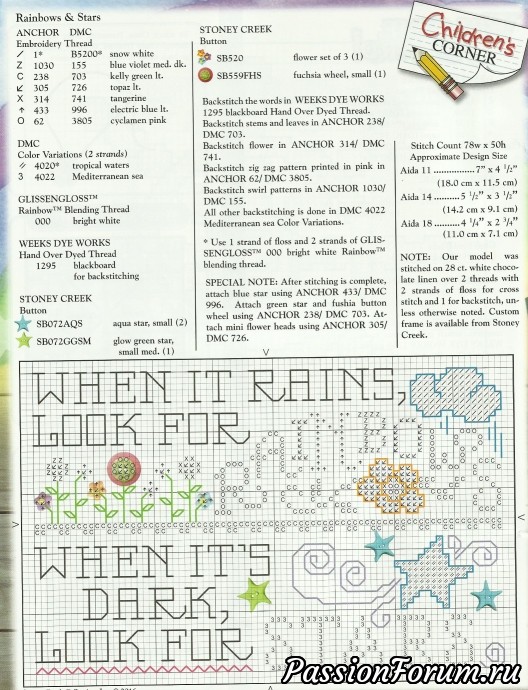 Rainbows & Stars
ANCHOR DMC
Embroidery Thread
1* B5200* snow white
Z 1030 155 blue violet med. dk.
C 238 703 kelly green lt.
305 726 topaz lt.
X 314 741 tangerine
↑ 433 996 electric blue lt.
O 62 3805 cyclamen pink
DMC
Color Variations (2 strands)
4020* tropical waters
3 4022 Mediterranean sea
GLISSENGLOSS™
Rainbow™ Blending Thread
000 bright white
WEEKS DYE WORKS
Hand Over Dyed Thread
1295 blackboard
for backstitching
STONEY CREEK
Button
SB072AQS aqua star, small (2)
SB072GGSM glow green star,
small med. (1)
STONEY CREEK
Button
SB520 flower set of 3 (1)
SB559FHS fuchsia wheel, small (1)
Backstitch the words in WEEKS DYE WORKS
1295 blackboard Hand Over Dyed Thread.
Backstitch stems and leaves in ANCHOR 238/
DMC 703.
Backstitch flower in ANCHOR 314/ DMC
741.
Backstitch zig zag pattern printed in pink in
ANCHOR 62/ DMC 3805.
Backstitch swirl patterns in ANCHOR 1030/
DMC 155.
All other backstitching is done in DMC 4022
Mediterranean sea Color Variations.
* Use 1 strand of floss and 2 strands of GLIS-
SENGLOSS™ 000 bright white Rainbow™
blending thread.
SPECIAL NOTE: After stitching is complete,
attach blue star using ANCHOR 433/ DMC
996. Attach green star and fushia button
wheel using ANCHOR 238/ DMC 703. At-
tach mini flower heads using ANCHOR 305/
DMC 726.
Children's
CORNER
Stitch Count 78w x 50h
Approximate Design Size
Aida 11 ..............7" x 4 1/2"
(18.0 cm x 11.5 cm)
Aida 14 .........5 1/2" x 3 1/2"
(14.2 cm x 9.1 cm)
Aida 18 .........4 1/4" x 2 3/4"
(11.0 cm x 7.1 cm)
NOTE: Our model was
stitched on 28 ct. white choc-
olate linen over 2 threads with
2 strands of floss for cross
stitch and 1 for backstitch, un-
less otherwise noted. Custom
frame is available from Stoney
Creek.
WHEN IT RAINS,
LOOK FOR
WHEN IT'S
DARK,
LOOK FOR
PassionForum.ru